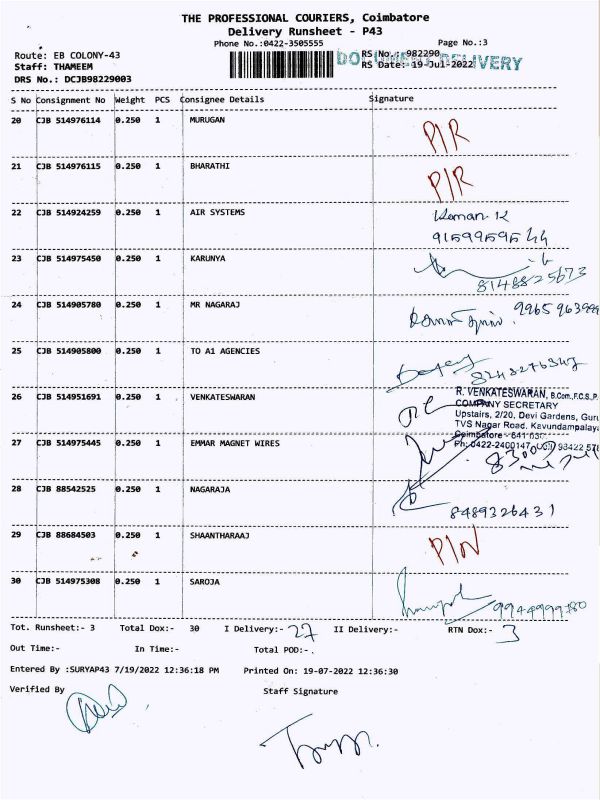 THE PROFESSIONAL COURIERS, Coimbatore
Delivery Runsheet - P43
Phone No.:0422-3505555 Page No.:3
Route: EB COLONY-43 RS No.: 982290
DOCUMENT DELIVERY
Staff: THAMEEM RS Date: 19-Jul-2022
DRS No.: DCJB98229003
S No Consignment No Weight PCS Consignee Details Signature
20 CJB 514976114 0.250 1 MURUGAN P/R
21 CJB 514976115 0.250 1 BHARATHI P/R
22 CJB 514924259 0.250 1 AIR SYSTEMS
23 CJB 514975450 0.250 1 KARUNYA
8148825673
24 CJB 514905780 0.250 1 MR NAGARAJ
25 CJB 514905800 0.250 1 TO A1 AGENCIES
26 CJB 514951691 0.250 1 VENKATESWARAN
R. VENKATESWARAN, B.Com.,F.C.S.,P.
COMPANY SECRETARY
Upstairs, 2/20, Devi Gardens, Guru
TVS Nagar Road, Kavundampalaya
Coimbatore - 641 030
Ph: 0422-2400147
27 CJB 514975445 0.250 1 EMMAR MAGNET WIRES
28 CJB 88542525 0.250 1 NAGARAJA
8489326431
29 CJB 88684503 0.250 1 SHAANTHARAAJ P/N
30 CJB 514975308 0.250 1 SAROJA
9944999780
Tot. Runsheet:- 3 Total Dox:- 30 I Delivery:- 27 II Delivery:- RTN Dox:- 3
Out Time:- In Time:- Total POD:-.
Entered By :SURYAP43 7/19/2022 12:36:18 PM Printed On: 19-07-2022 12:36:30
Verified By Staff Signature